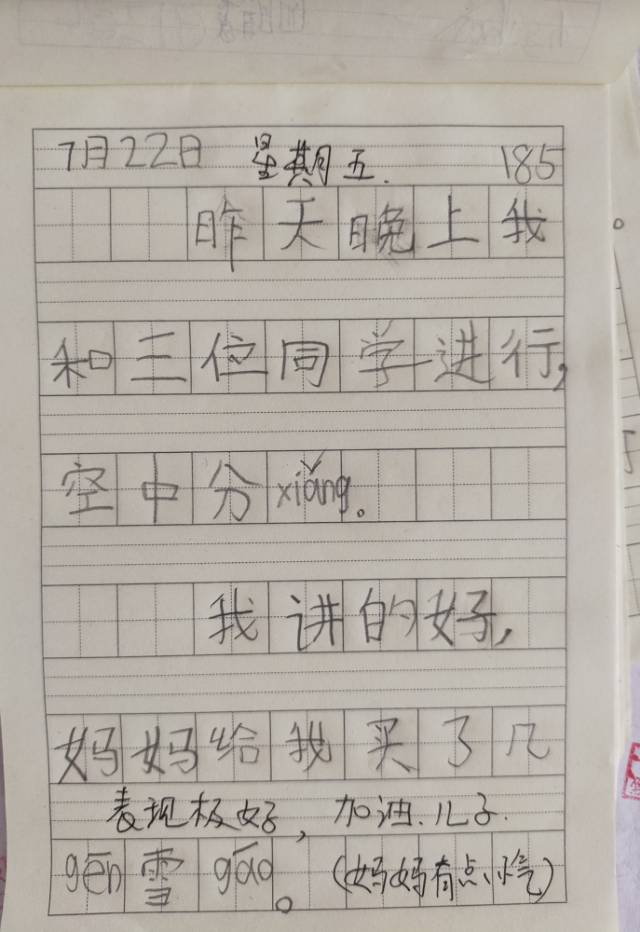 7月22日 星期五. 185
昨天晚上我
和三位同学进行,
空中分xiǎng。
我讲的好,
妈妈给我买了几
表现极好,加油.儿子.
gēn雪gāo。(妈妈有点小气)